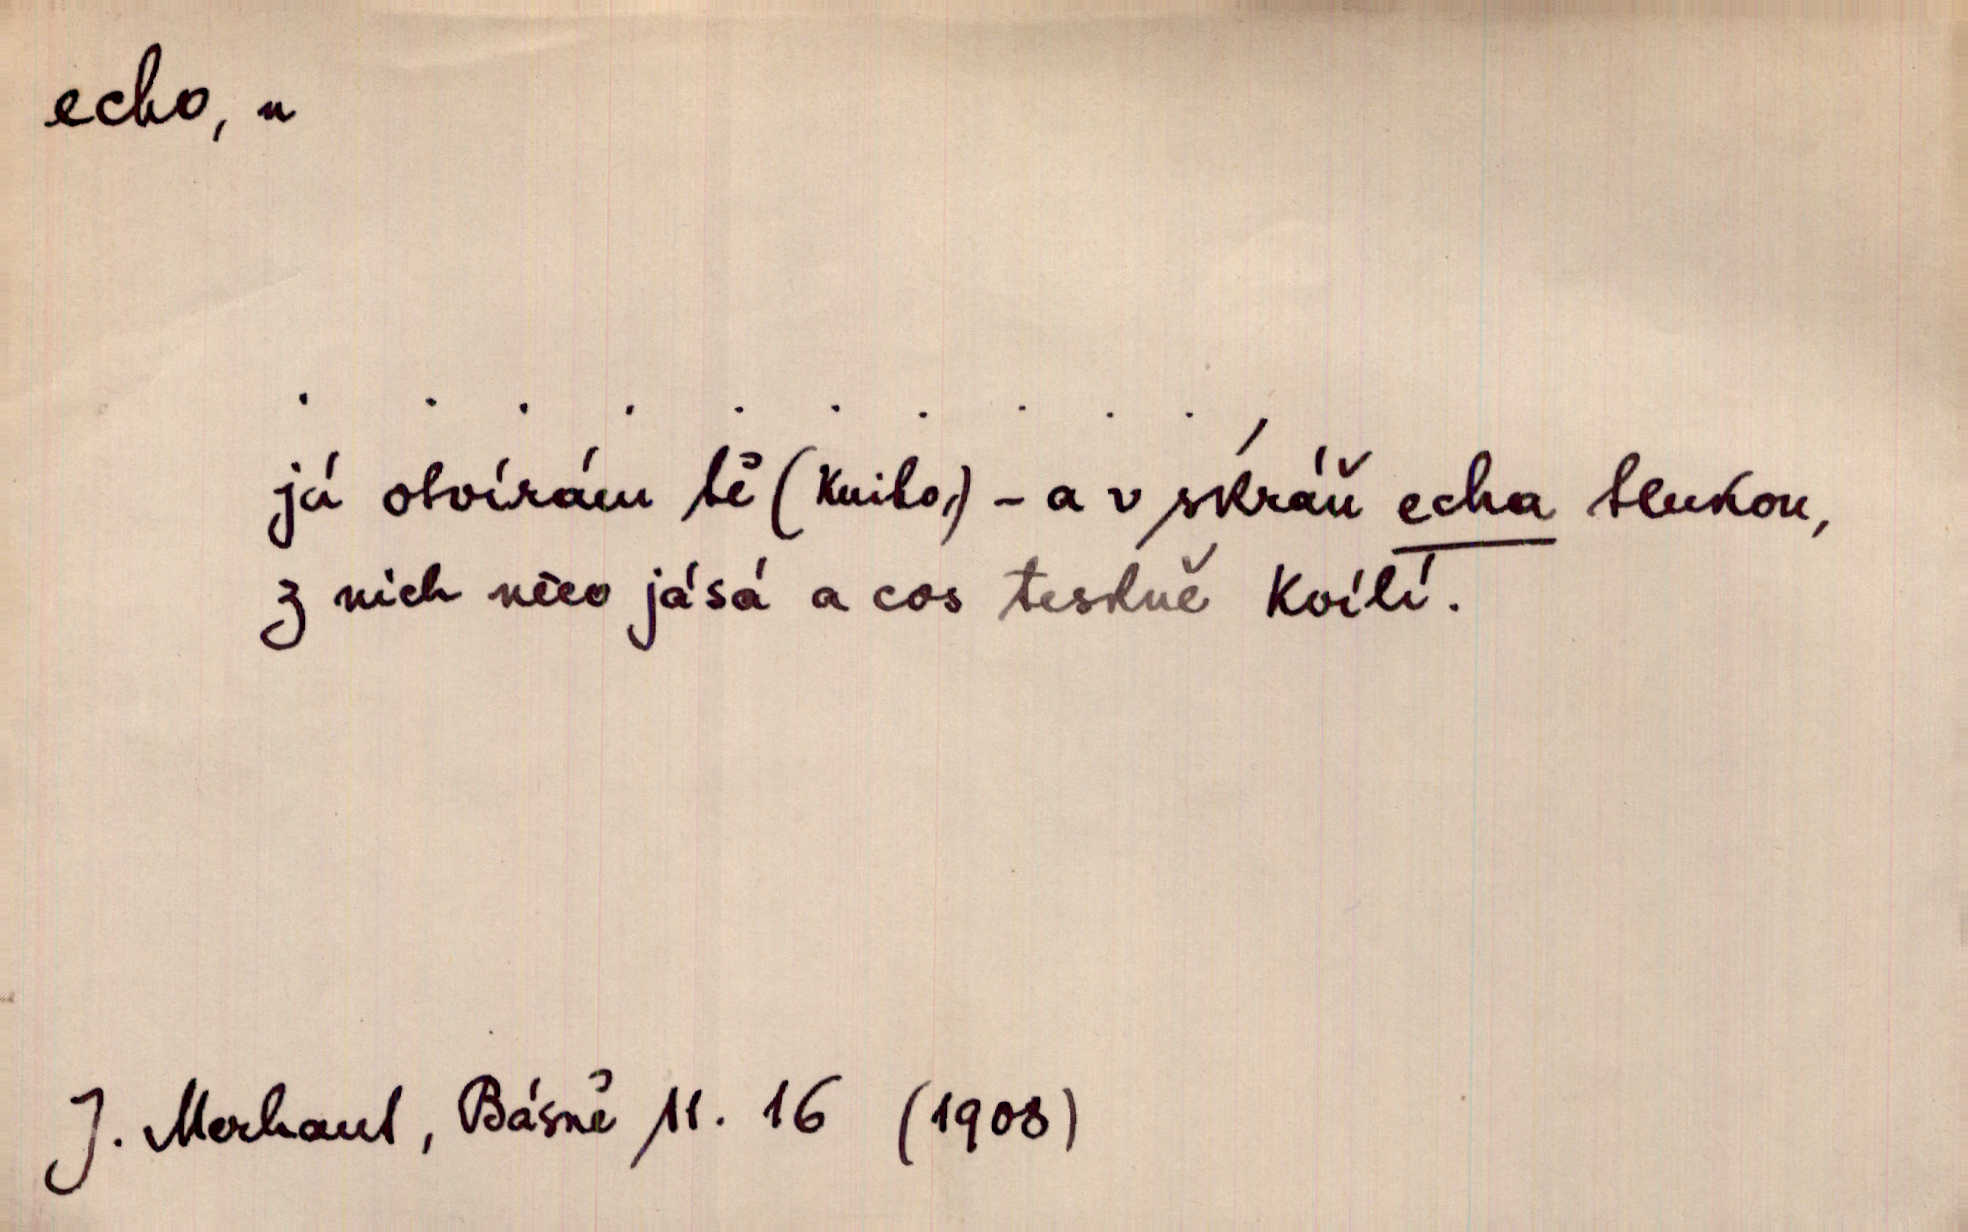 echo, n
. . . . . . . . . . ,
já otvírám tě (Kniho,) – a v skráň echa tlukou,
z nich něco jásá a cos teskně kvílí.
J. Merhaut, Básně 11. 16 (1908)